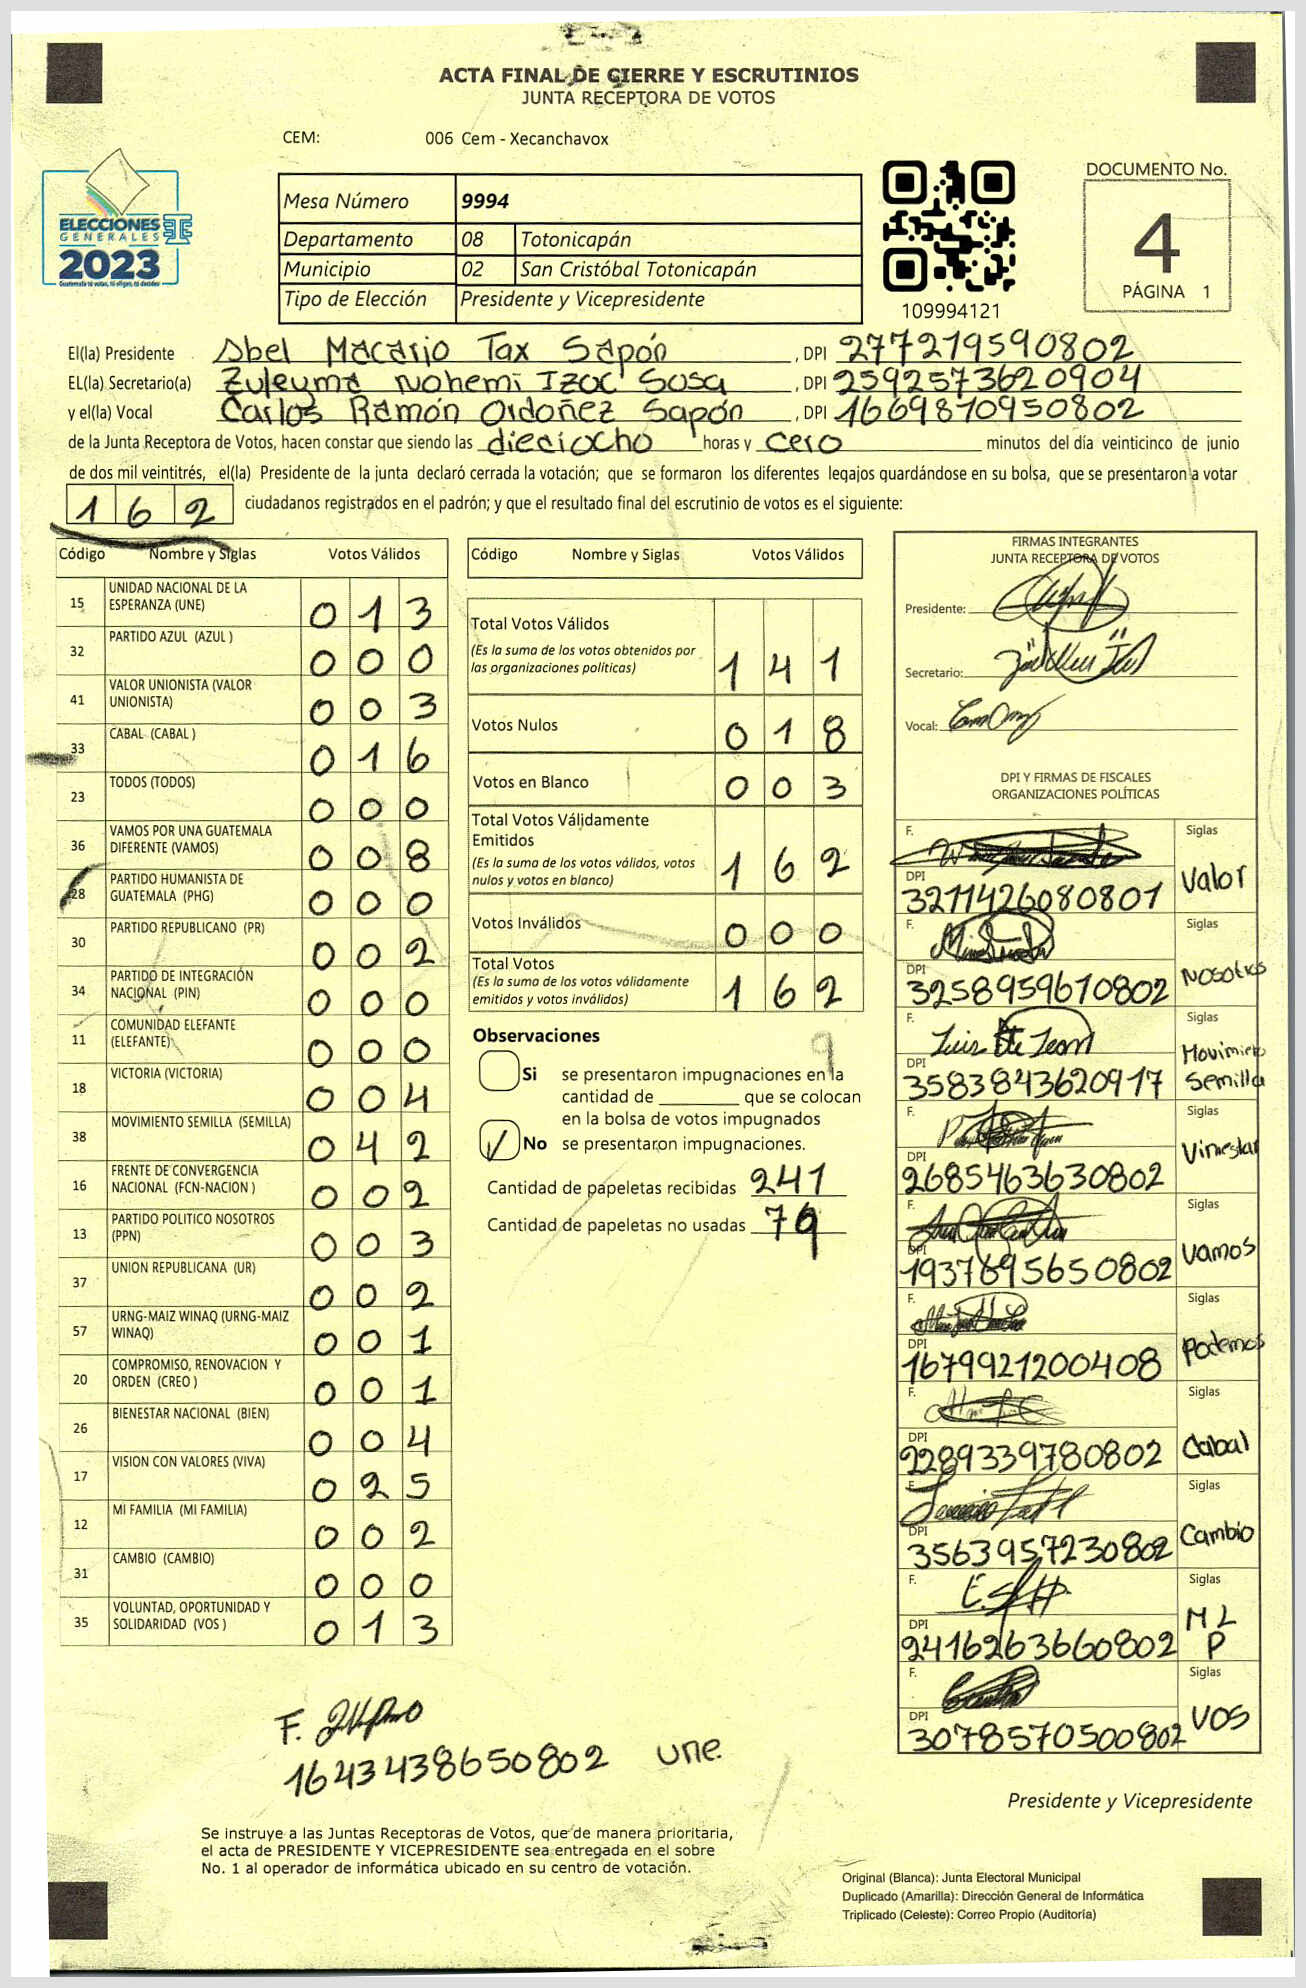 ACTA FINAL DE CIERRE Y ESCRUTINIOS
JUNTA RECEPTORA DE VOTOS
CEM: 006 Cem - Xecanchavox
ELECCIONES
GENERALES
2023
Guatemala tú votas, tú eliges, tú decides
Mesa Número 9994
Departamento 08 Totonicapán
Municipio 02 San Cristóbal Totonicapán
Tipo de Elección Presidente y Vicepresidente
109994121
DOCUMENTO No.
4
PÁGINA 1
El(la) Presidente Abel Macario Tax Sapón , DPI 277219590802
EL(la) Secretario(a) Zuleyma Nohemi Izoc Sosa , DPI 2592573620904
y el(la) Vocal Carlos Ramón Ordoñez Sapón , DPI 1669870950802
de la Junta Receptora de Votos, hacen constar que siendo las dieciocho horas y cero minutos del día veinticinco de junio
de dos mil veintitrés, el(la) Presidente de la junta declaró cerrada la votación; que se formaron los diferentes legajos quardándose en su bolsa, que se presentaron a votar
162 ciudadanos registrados en el padrón; y que el resultado final del escrutinio de votos es el siguiente:
Código Nombre y Siglas Votos Válidos
15 UNIDAD NACIONAL DE LA ESPERANZA (UNE) 013
32 PARTIDO AZUL (AZUL ) 000
41 VALOR UNIONISTA (VALOR UNIONISTA) 003
33 CABAL (CABAL ) 016
23 TODOS (TODOS) 000
36 VAMOS POR UNA GUATEMALA DIFERENTE (VAMOS) 008
28 PARTIDO HUMANISTA DE GUATEMALA (PHG) 000
30 PARTIDO REPUBLICANO (PR) 002
34 PARTIDO DE INTEGRACIÓN NACIONAL (PIN) 000
11 COMUNIDAD ELEFANTE (ELEFANTE) 000
18 VICTORIA (VICTORIA) 004
38 MOVIMIENTO SEMILLA (SEMILLA) 042
16 FRENTE DE CONVERGENCIA NACIONAL (FCN-NACION ) 002
13 PARTIDO POLITICO NOSOTROS (PPN) 003
37 UNION REPUBLICANA (UR) 002
57 URNG-MAIZ WINAQ (URNG-MAIZ WINAQ) 001
20 COMPROMISO, RENOVACION Y ORDEN (CREO ) 001
26 BIENESTAR NACIONAL (BIEN) 004
17 VISION CON VALORES (VIVA) 025
12 MI FAMILIA (MI FAMILIA) 002
31 CAMBIO (CAMBIO) 000
35 VOLUNTAD, OPORTUNIDAD Y SOLIDARIDAD (VOS ) 013
Código Nombre y Siglas Votos Válidos
Total Votos Válidos 141
(Es la suma de los votos obtenidos por
las organizaciones políticas)
Votos Nulos 018
Votos en Blanco 003
Total Votos Válidamente
Emitidos 162
(Es la suma de los votos válidos, votos
nulos y votos en blanco)
Votos Inválidos 000
Total Votos 162
(Es la suma de los votos válidamente
emitidos y votos inválidos)
Observaciones
9
Si se presentaron impugnaciones en la
cantidad de ________ que se colocan
en la bolsa de votos impugnados
No se presentaron impugnaciones.
Cantidad de papeletas recibidas 241
Cantidad de papeletas no usadas 79
FIRMAS INTEGRANTES
JUNTA RECEPTORA DE VOTOS
Presidente:
Secretario:
Vocal:
DPI Y FIRMAS DE FISCALES
ORGANIZACIONES POLÍTICAS
F. Siglas
DPI 3211426080801 Valor
F. Siglas
DPI 3258959610802 NOSOtros
F. Luis De Leon Siglas
DPI 3583843620917 Movimieto Semilla
F. Siglas
DPI 2685463630802 Vinestar
F.
DPI 1937895650802 Vamos
F. Siglas
DPI 1679921200408 Podemos
F. Siglas
DPI 2289339780802 Cabal
F. Siglas
DPI 3563957230802 Cambio
F. Siglas
DPI 2416263660802 MLP
F. Siglas
DPI 3078570500802 VOS
F.
1643438650802 une.
Presidente y Vicepresidente
Se instruye a las Juntas Receptoras de Votos, que de manera prioritaria,
el acta de PRESIDENTE Y VICEPRESIDENTE sea entregada en el sobre
No. 1 al operador de informática ubicado en su centro de votación.
Original (Blanca): Junta Electoral Municipal
Duplicado (Amarilla): Dirección General de Informática
Triplicado (Celeste): Correo Propio (Auditoría)